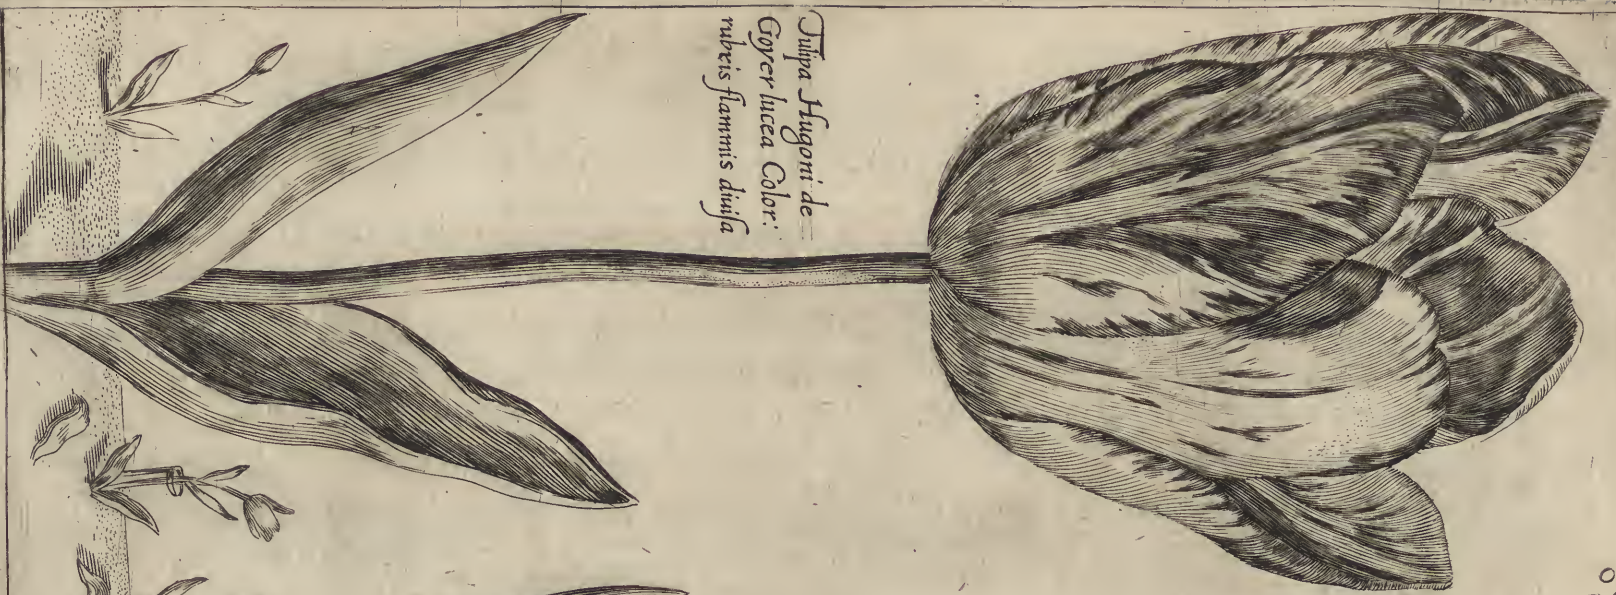 Tulipa Hugoni de
Goyer lucea Color:
rubeis flammis diuisa